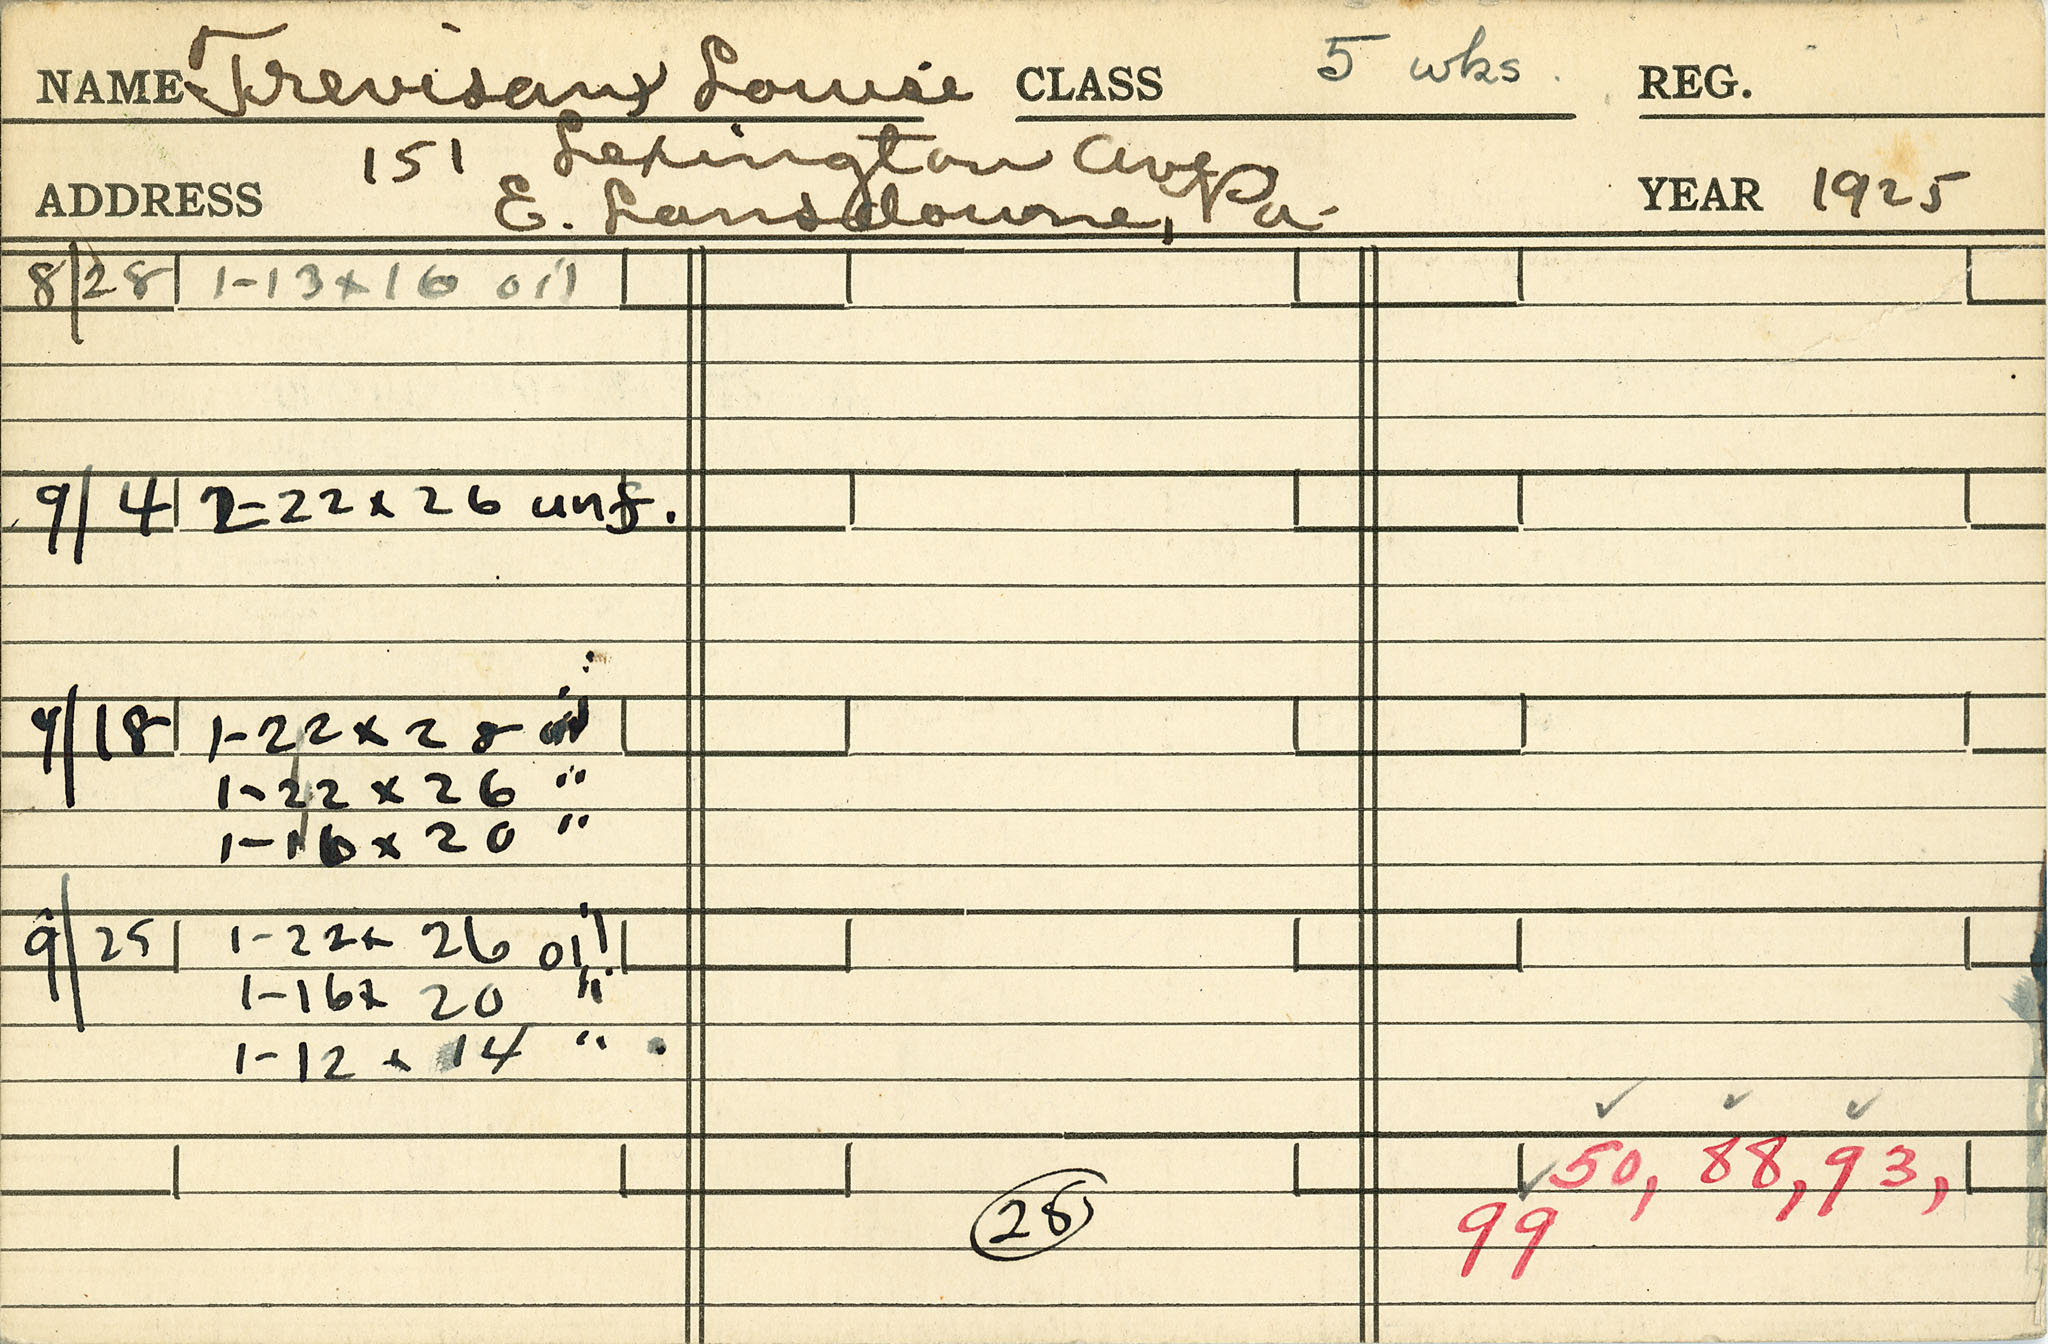 NAME Trevisan, Louise CLASS 5 wks. REG.
151 Lexington Ave
ADDRESS E. Lansdowne, Pa. YEAR 1925
8/28 1-13x16 oil
9/4 2-22x26 unf.
9/18 1-22x28 oil
1-22x26 "
1-16x20 "
9/25 1-22x26 oil
1-16x20 "
1-12x14 "
50, 88, 93,
28 99